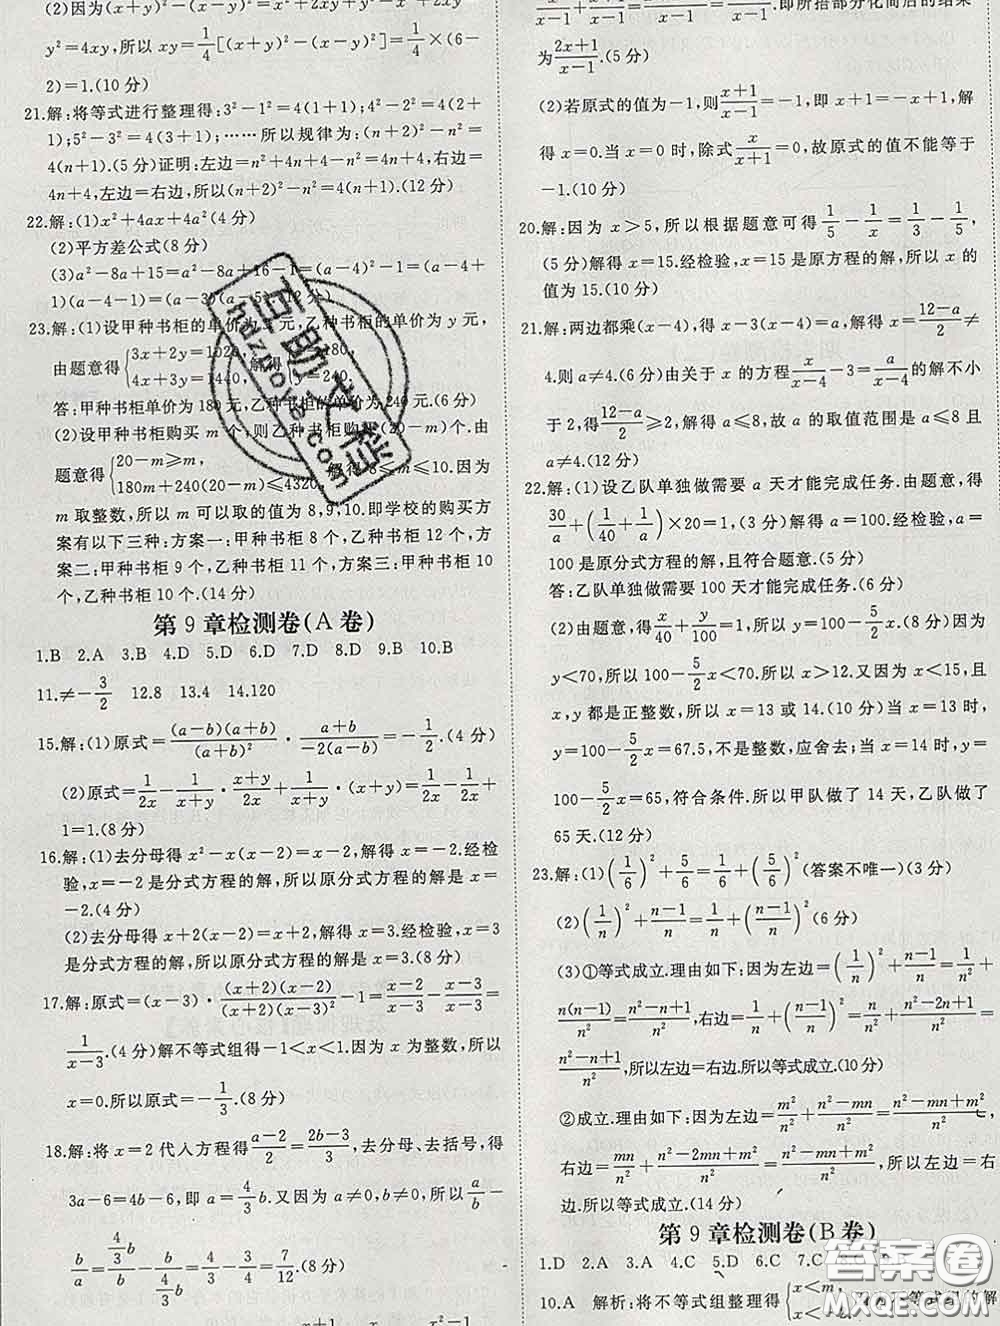 (2)因为(x+y)²-(x-y)²=x²+2xy+y²-x²+2xy-
y²=4xy,所以 xy=1/4[(x+y)²-(x-y)²]=1/4×(6-
2)=1.(10分)
21.解:将等式进行整理得:3²-1²=4(1+1);4²-2²=4(2+
1);5²-3²=4(3+1);……所以规律为:(n+2)²-n²=
4(n+1).(5分)证明:左边=n²+4n+4-n²=4n+4,右边=
4n+4,左边=右边,所以(n+2)²-n²=4(n+1).(12分)
22.解:(1)x²+4ax+4a²(4分)
(2)平方差公式(8分)
(3)a²-8a+15=a²-8a+16-1=(a-4)²-1=(a-4+
1)(a-4-1)=(a-3)(a-5).(12分)
23.解:(1)设甲种书柜的单价为 元,乙种书柜的单价为 y 元,
由题意得{3x+2y=1020, 4x+3y=1440, 解得{ 180, y=240.
答:甲种书柜单价为 180 元,乙种书柜的单价为 240 元.(6分)
(2)设甲种书柜购买 m 个,则乙种书柜购 (20-m)个.由
题意得{20-m≥m, 180m+240(20-m)≤4320, 解得 8≤m≤10.因为
m 取整数,所以 m 可以取的值为 8,9,10.即学校的购买方
案有以下三种:方案一:甲种书柜 8 个,乙种书柜 12 个,方
案二:甲种书柜 9 个,乙种书柜 11 个,方案三:甲种书柜 10
个,乙种书柜 10 个.(14分)
第 9 章检测卷(A 卷)
1.B 2.A 3.B 4.D 5.D 6.D 7.D 8.D 9.B 10.B
11.≠-3/2 12.8 13.4 14.120
15.解:(1)原式=(a-b)(a+b)/(a+b)²·(a+b)/-2(a-b)=-1/2.(4分)
(2)原式=1/2x-1/(x+y)·(x+y)/2x+1/(x+y)·(x+y)=1/2x-1/2x+
1=1.(8分)
16.解:(1)去分母得 x²-x(x-2)=x-2,解得 x=-2.经检
验,x=-2 是分式方程的解,所以原分式方程的解是 x=
-2.(4分)
(2)去分母得 x+2(x-2)=x+2,解得 x=3.经检验,x=3
是分式方程的解,所以原分式方程的解是 x=3.(8分)
17.解:原式=(x-3)·(x+2)(x-2)/(x+2)(x-3)²-1=(x-2)/(x-3)-(x-3)/(x-3)=
1/(x-3).(4分)解不等式组得-1<x<1.因为 x 为整数,所以
x=0.所以原式=-1/3.(8分)
18.解:将 x=2 代入方程得(a-2)/2=(2b-3)/3,去分母、去括号,得
3a-6=4b-6,即 a=4/3 b.又因为 a≠0,b≠0,所以 a/b-
b/a=(4/3 b)/b-b/(4/3 b)=4/3-3/4=7/12.(8分)
x/(x-1) 即所捂部分化简后的结果
为(2x+1)/(x-1).(5分)
(2)若原式的值为-1,则(x+1)/(x-1)=-1,即 x+1=-x+1,解
得 x=0.当 x=0 时,除式 x/(x+1)=0,故原式的值不能等于
-1.(10分)
20.解:因为 x>5,所以根据题意可得 1/5-1/x=1/3-1/5,
(5分)解得 x=15.经检验,x=15 是原方程的解,所以 x 的
值为 15.(10分)
21.解:两边都乘(x-4),得 x-3(x-4)=a,解得 x=(12-a)/2≠
4.则 a≠4.(6分)由关于 x 的方程 x/(x-4)-3=a/(x-4)的解不小
于 2,得(12-a)/2≥2,解得 a≤8,故 a 的取值范围是 a≤8 且
a≠4.(12分)
22.解:(1)设乙队单独做需要 a 天才能完成任务.由题意,得
30/a+(1/40+1/a)×20=1,(3分)解得 a=100.经检验,a=
100 是原分式方程的解,且符合题意.(5分)
答:乙队单独做需要 100 天才能完成任务.(6分)
(2)由题意,得 x/40+y/100=1,所以 y=100-5/2 x.(8分)因为
y<70,所以 100-5/2 x<70.所以 x>12.又因为 x<15,且
x,y 都是正整数,所以 x=13 或 14.(10分)当 x=13 时,y=
100-5/2 x=67.5,不是整数,应舍去;当 x=14 时,y=
100-5/2 x=65,符合条件.所以甲队做了 14 天,乙队做了
65 天.(12分)
23.解:(1)(1/6)²+5/6=1/6+(5/6)²(答案不唯一)(3分)
(2)(1/n)²+(n-1)/n=1/n+((n-1)/n)²(6分)
(3)①等式成立.理由如下:因为左边=(1/n)²+(n-1)/n=1/n²+
n(n-1)/n²=(n²-n+1)/n²,右边=1/n+((n-1)/n)²=n/n²+(n²-2n+1)/n²=
(n²-n+1)/n²,所以左边=右边.所以等式成立.(10分)
②成立.理由如下:因为左边=m²/n²+(n²-mn)/n²=(n²-mn+m²)/n²,
右边=mn/n²+(n²-2mn+m²)/n²=(n²-mn+m²)/n²,所以左边=右
边.所以等式成立.(14分)
第 9 章检测卷(B 卷)
1.D 2.A 3.A 4.C 5.D 6.C 7.C
10.A 解析:将不等式组整理得{x<m,
互助文档
huzhuwendang.com
答案圈
MXQE.COM